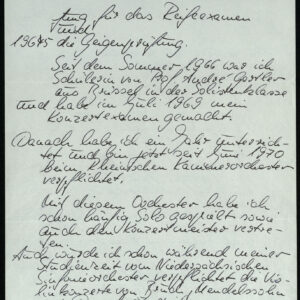 tung für das Reifeexamen
und
1964/5 die Geigenprüfung.
Seit dem Sommer 1966 war ich
Schülerin von Prof. André Gertler
aus Brüssel in der Solistenklasse
und habe im Juli 1969 mein
Konzertexamen gemacht.
Danach habe ich ein Jahr unterrich-
tet und bin jetzt seit Juni 1970
beim Rheinischen Kammerorchester
verpflichtet.
Mit diesem Orchester habe ich
schon häufig Solo gespielt sowie
auch den Konzertmeister vertre-
ten.
Auch wurde ich schon während meiner
Studienzeit vom Niedersächsischen
Sinfonieorchester verpflichtet die Vio-
linkonzerte von Bruch, Mendelssohn